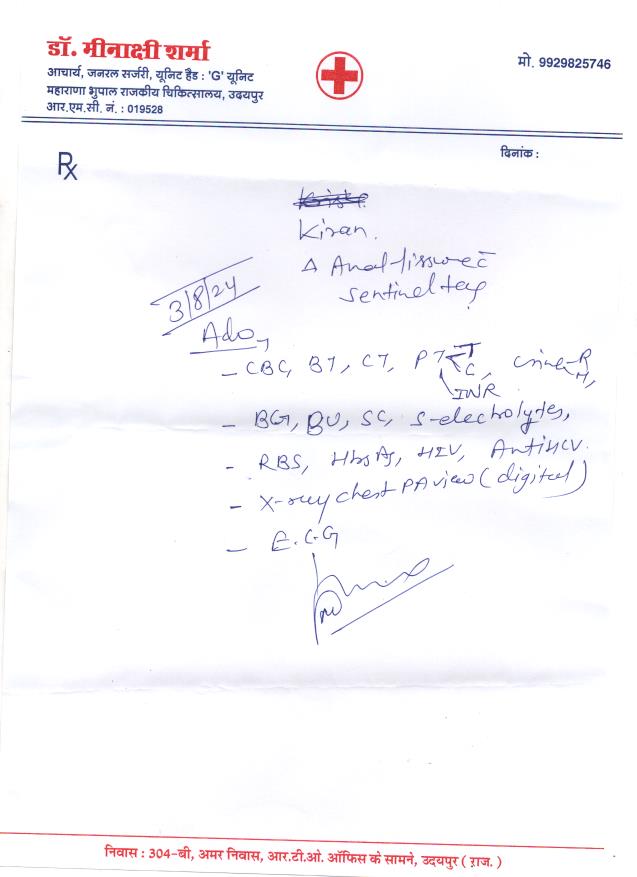 डॉ. मीनाक्षी शर्मा
आचार्य, जनरल सर्जरी, यूनिट हैड : 'G' यूनिट
महाराणा भुपाल राजकीय चिकित्सालय, उदयपुर
आर.एम.सी. नं. : 019528
मो. 9929825746
दिनांक :
Rx
Kiran.
Δ Anal fissure c̄
sentinel tag
3/8/24
Adv
- CBC, BT, CT, PT T C, urine R M,
INR
- BG, BU, SC, S-electrolytes,
- RBS, HbsAg, HIV, AntiHCV.
- X-ray chest PA view (digital)
- E.C.G
निवास : 304-बी, अमर निवास, आर.टी.ओ. ऑफिस के सामने, उदयपुर ( राज. )